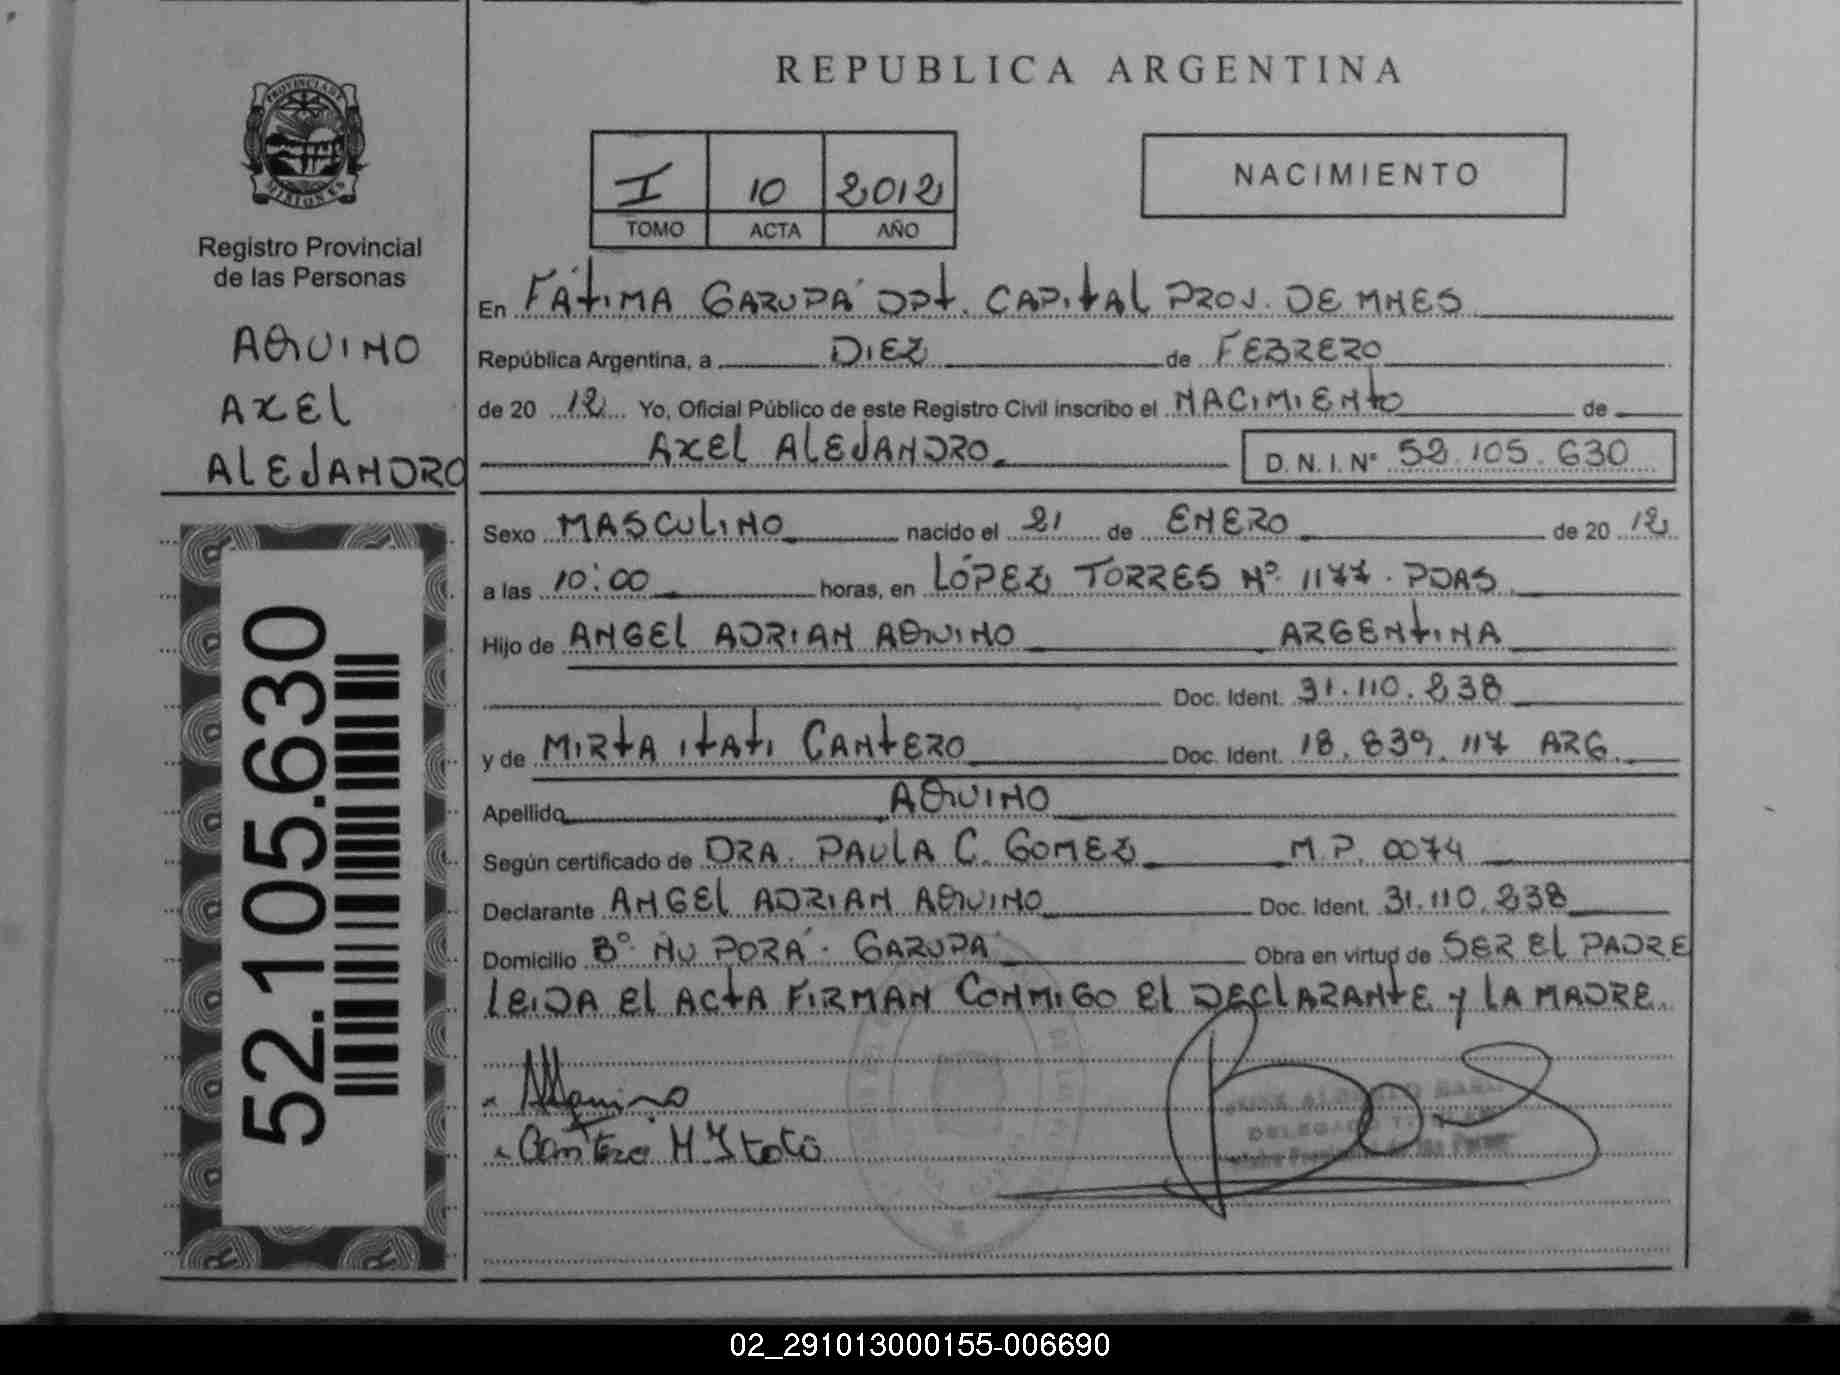 PROVINCIA DE
MISIONES
Registro Provincial
de las Personas
AQUINO
AXEL
ALEJANDRO
52.105.630
REPUBLICA ARGENTINA
I 10 2012
TOMO ACTA AÑO
NACIMIENTO
En FÁTIMA GARUPÁ DPT. CAPITAL PROV. DE MNES
República Argentina, a DIEZ de FEBRERO
de 20 12 Yo, Oficial Público de este Registro Civil inscribo el NACIMIENTO de
AXEL ALEJANDRO D. N. I. Nº 52.105.630
Sexo MASCULINO nacido el 21 de ENERO de 20 12
a las 10:00 horas, en LÓPEZ TORRES Nº 1177. PDAS
Hijo de ANGEL ADRIAN AQUINO ARGENTINA
Doc. Ident. 31.110.238
y de MIRTA ITATI CANTERO Doc. Ident. 18.839.117 ARG.
Apellido AQUINO
Según certificado de DRA. PAULA C. GOMEZ M.P. 0074
Declarante ANGEL ADRIAN AQUINO Doc. Ident. 31.110.238
Domicilio Bº ÑU PORÁ. GARUPÁ Obra en virtud de SER EL PADRE
LEIDA EL ACTA FIRMAN CONMIGO EL DECLARANTE Y LA MADRE.
Aquino
Cantero M. Itati
02_291013000155-006690